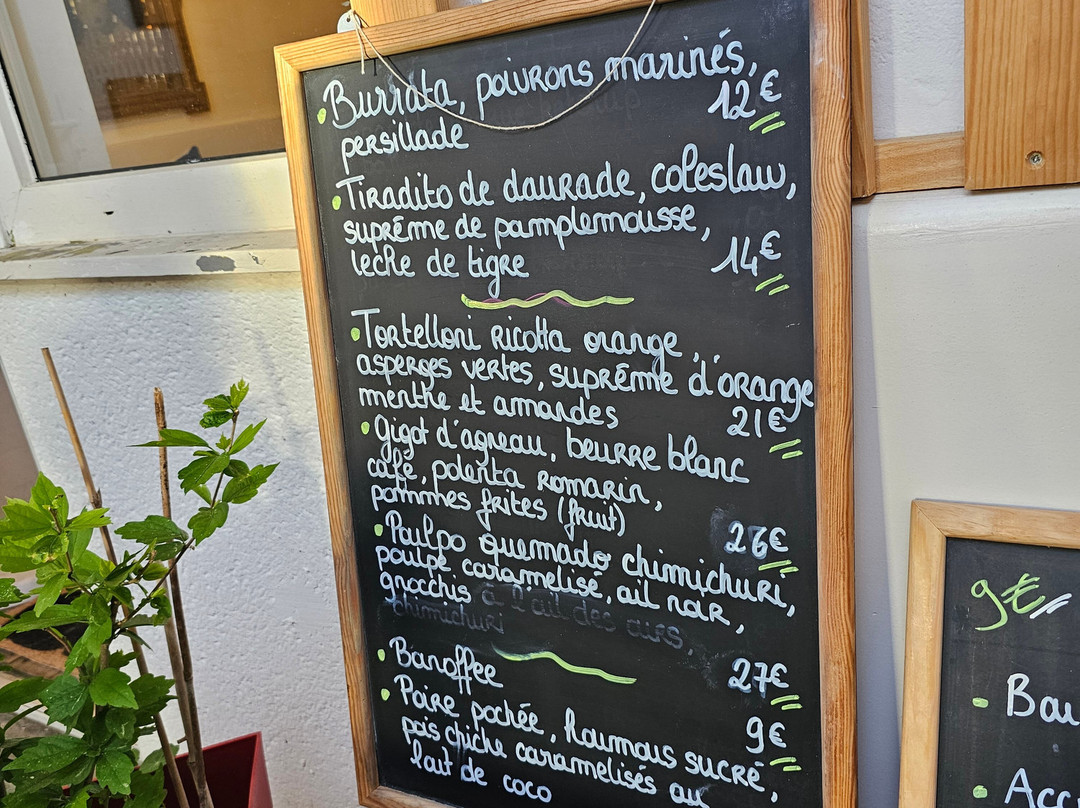 Burrata, poivrons marinés,
persillade
12€
Tiradito de daurade, coleslaw,
suprême de pamplemousse,
leche de tigre
14€
Tortelloni ricotta orange,
asperges vertes, suprême d'orange
menthe et amandes
21€
Gigot d'agneau, beurre blanc
café, polenta romarin,
pommmes frites (fruit)
26€
Poulpo quemado chimichuri,
poulpe caramelisé, ail noir,
gnocchis à l'ail des ours,
chimichuri
27€
Banoffee
9€
Poire pochée, houmous sucré,
pois chiche caramelisés au
lait de coco
9€
Bau
Acc